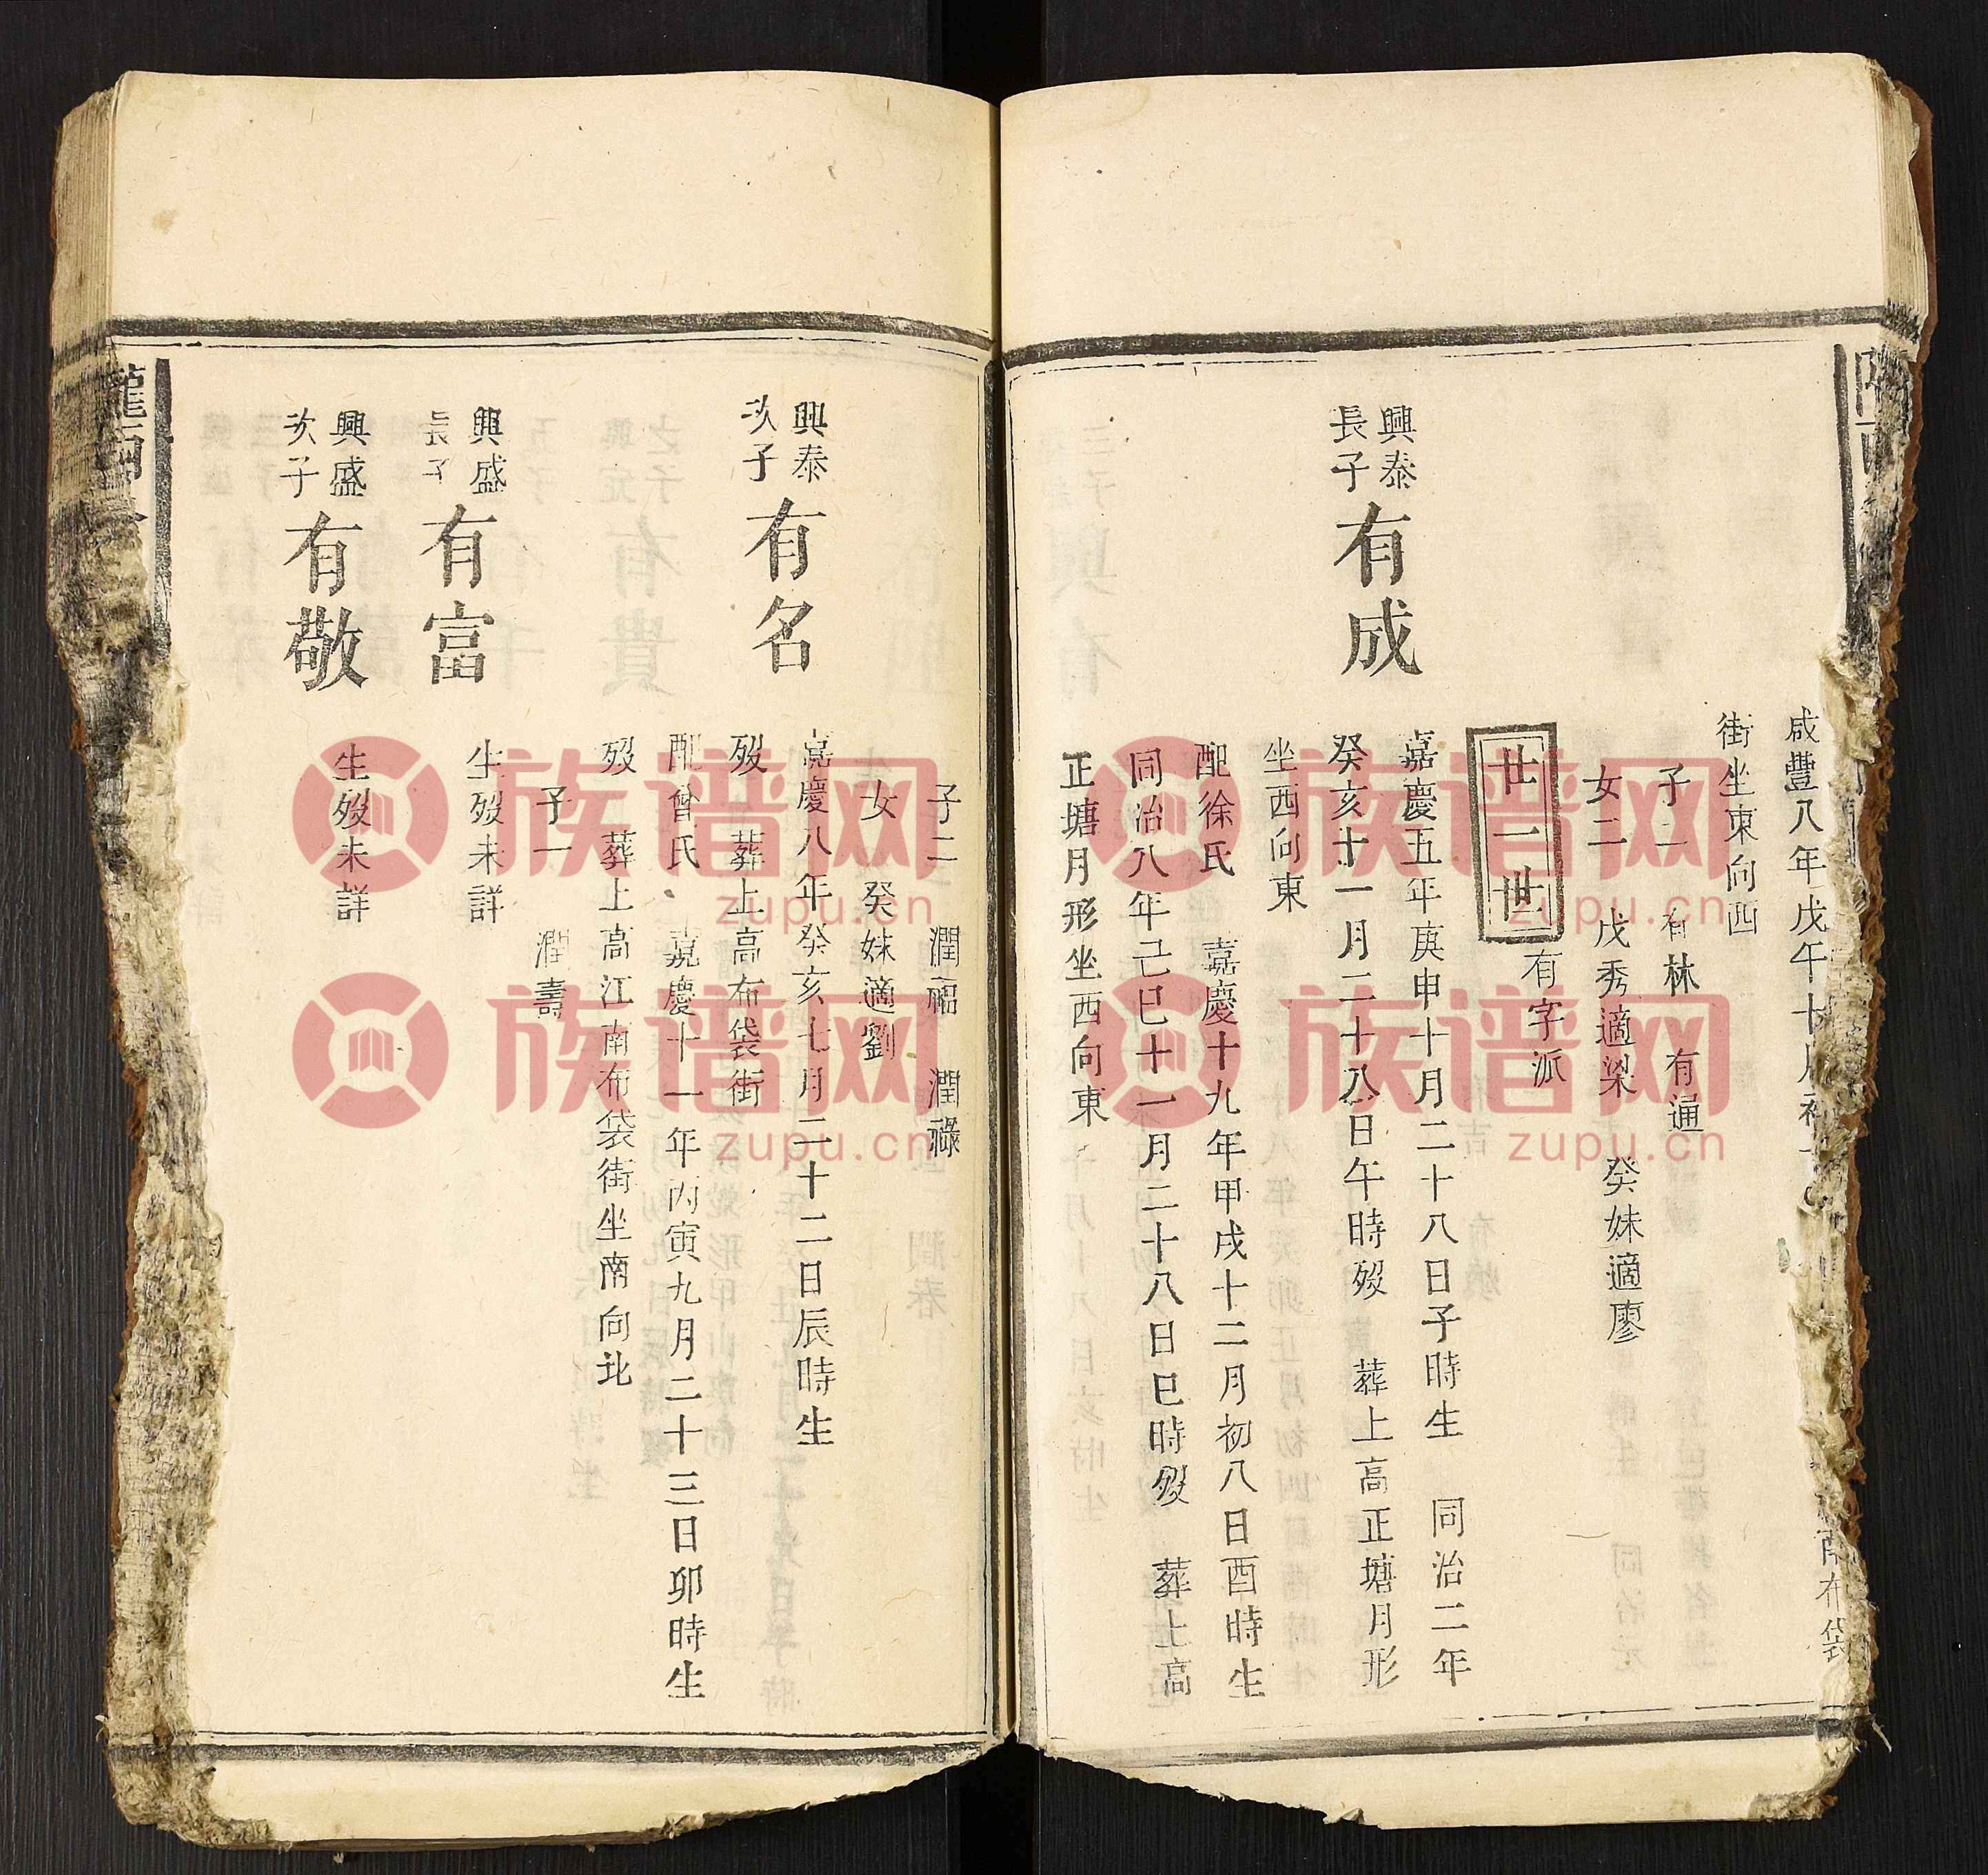 咸豐八年戊午十月初
南布袋
街坐東向西
子二 有林 有通
女二 戊秀適梁 癸妹適廖
廿一世 有字派
興泰
長子
有成
嘉慶五年庚申十月二十八日子時生 同治二年
癸亥十一月二十八日午時歿 葬上高正塘月形
坐西向東
配徐氏 嘉慶十九年甲戌十二月初八日酉時生
同治八年己巳十一月二十八日巳時歿 葬上高
正塘月形坐西向東
子二 潤福 潤祿
女一 癸妹適劉
興泰
次子
有名
嘉慶八年癸亥七月二十二日辰時生
歿 葬上高布袋街
配曾氏 嘉慶十一年丙寅九月二十三日卯時生
歿 葬上高江南布袋街坐南向北
子一 潤壽
興盛
長子
有富
生歿未詳
興盛
次子
有敬
生歿未詳
族谱网
zupu.cn
族谱网
zupu.cn
族谱网
zupu.cn
族谱网
zupu.cn